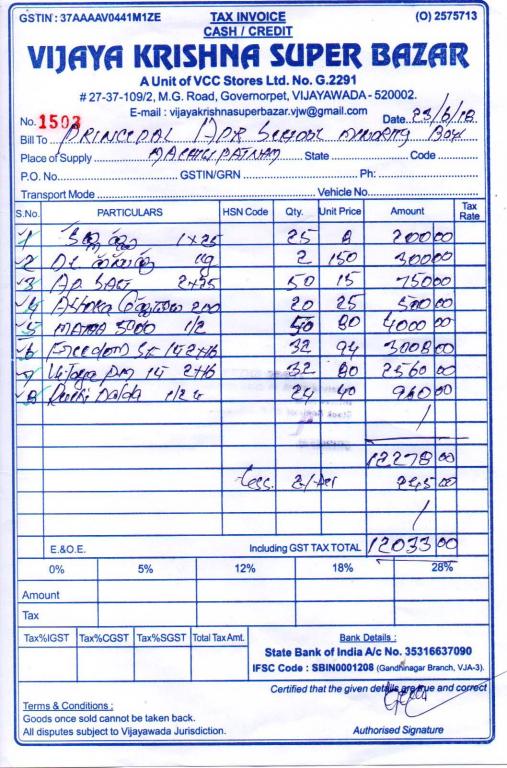 GSTIN : 37AAAAV0441M1ZE TAX INVOICE (O) 2575713
CASH / CREDIT
VIJAYA KRISHNA SUPER BAZAR
A Unit of VCC Stores Ltd. No. G.2291
# 27-37-109/2, M.G. Road, Governorpet, VIJAYAWADA - 520002.
E-mail : vijayakrishnasuperbazar.vjw@gmail.com
No. 1503 Date 23/6/18
Bill To PRINCIPAL School Minority Boys
Place of Supply State Code
P.O. No. GSTIN/GRN Ph:
Transport Mode Vehicle No.
S.No. PARTICULARS HSN Code Qty. Unit Price Amount Tax Rate
1 1x25 25 8 200 00
2 2 150 300 00
3 SALT 2x25 50 15 750 00
4 200 20 25 500 00
5 1/2 50 80 4000 00
6 Freedom 2x16 32 94 3008 00
7 Vijaya 2x16 32 80 2560 00
8 Ruchi Dalda 1/2 24 40 960 00
12278 00
Less. 245 00
E.&O.E. Including GST TAX TOTAL 12033 00
0% 5% 12% 18% 28%
Amount
Tax
Tax%IGST Tax%CGST Tax%SGST Total Tax Amt. Bank Details :
State Bank of India A/c No. 35316637090
IFSC Code : SBIN0001208 (Gandhinagar Branch, VJA-3).
Certified that the given details are true and correct
Terms & Conditions :
Goods once sold cannot be taken back.
All disputes subject to Vijayawada Jurisdiction. Authorised Signature